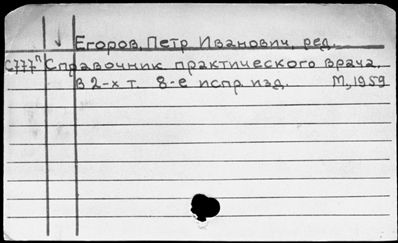 Егоров, Петр Иванович, ред.
С777п Справочник практического врача.
в 2-х т. 8-е испр. изд. М., 1959